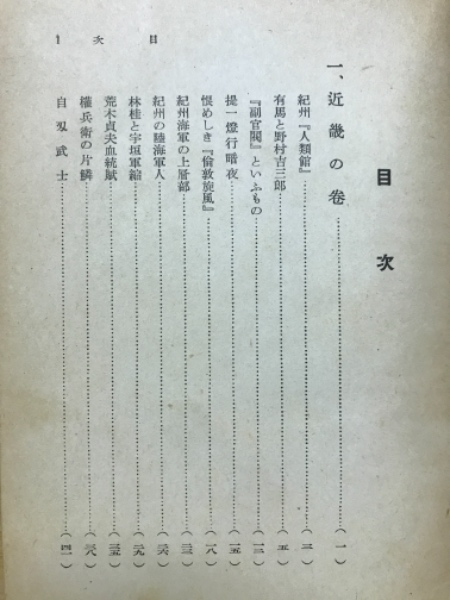 目次
一、近畿の卷……(一)
紀州『人類館』……(三)
有馬と野村吉三郎……(五)
『副官閥』といふもの……(一二)
提一燈行暗夜……(一五)
恨めしき『倫敦旋風』……(一八)
紀州海軍の上層部……(二三)
紀州の陸海軍人……(二六)
林桂と宇垣軍縮……(二九)
荒木貞夫血統賦……(三五)
權兵衛の片鱗……(三八)
自刄武士……(四一)
目次 1